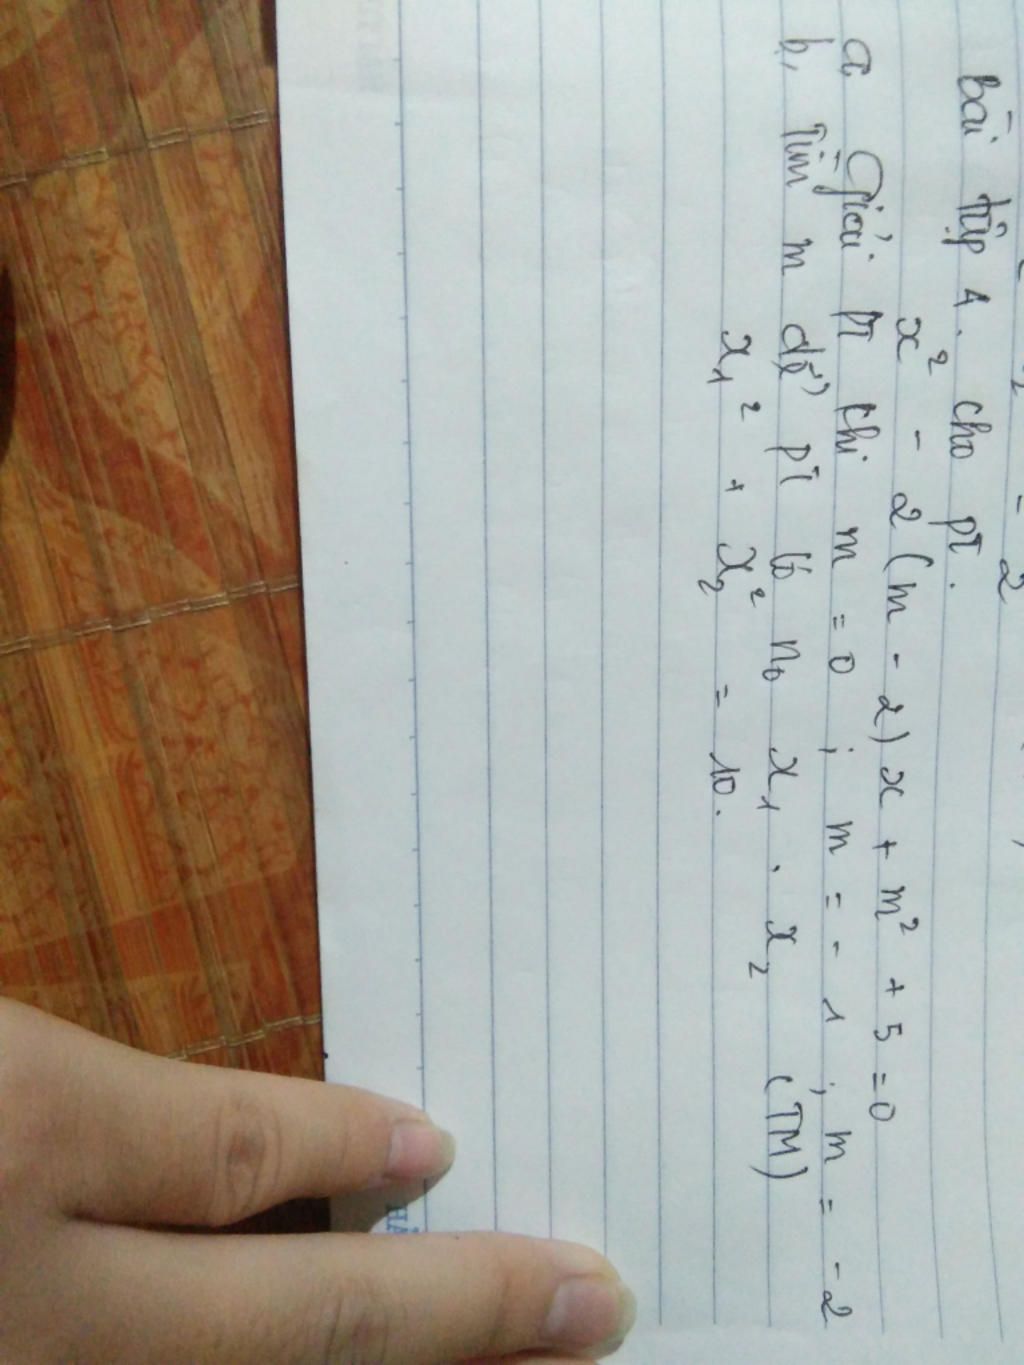 Bài tập 4. cho pt.
x² - 2(m - 2)x + m² + 5 = 0
a Giải pt khi m = 0 ; m = -1 ; m = -2
b, Tìm m để pt có n₀ x₁ . x₂ (TM)
x₁² + x₂² = 10.